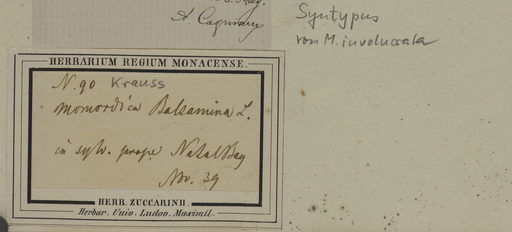 A. Cogniaux
Syntypus
von M. involucrata
HERBARIUM REGIUM MONACENSE.
N. 90 Krauss
Momordica Balsamina L.
in sylv. prope Natal Bay
Nov. 39
HERB. ZUCCARINII.
Herbar. Univ. Ludov. Maximil.